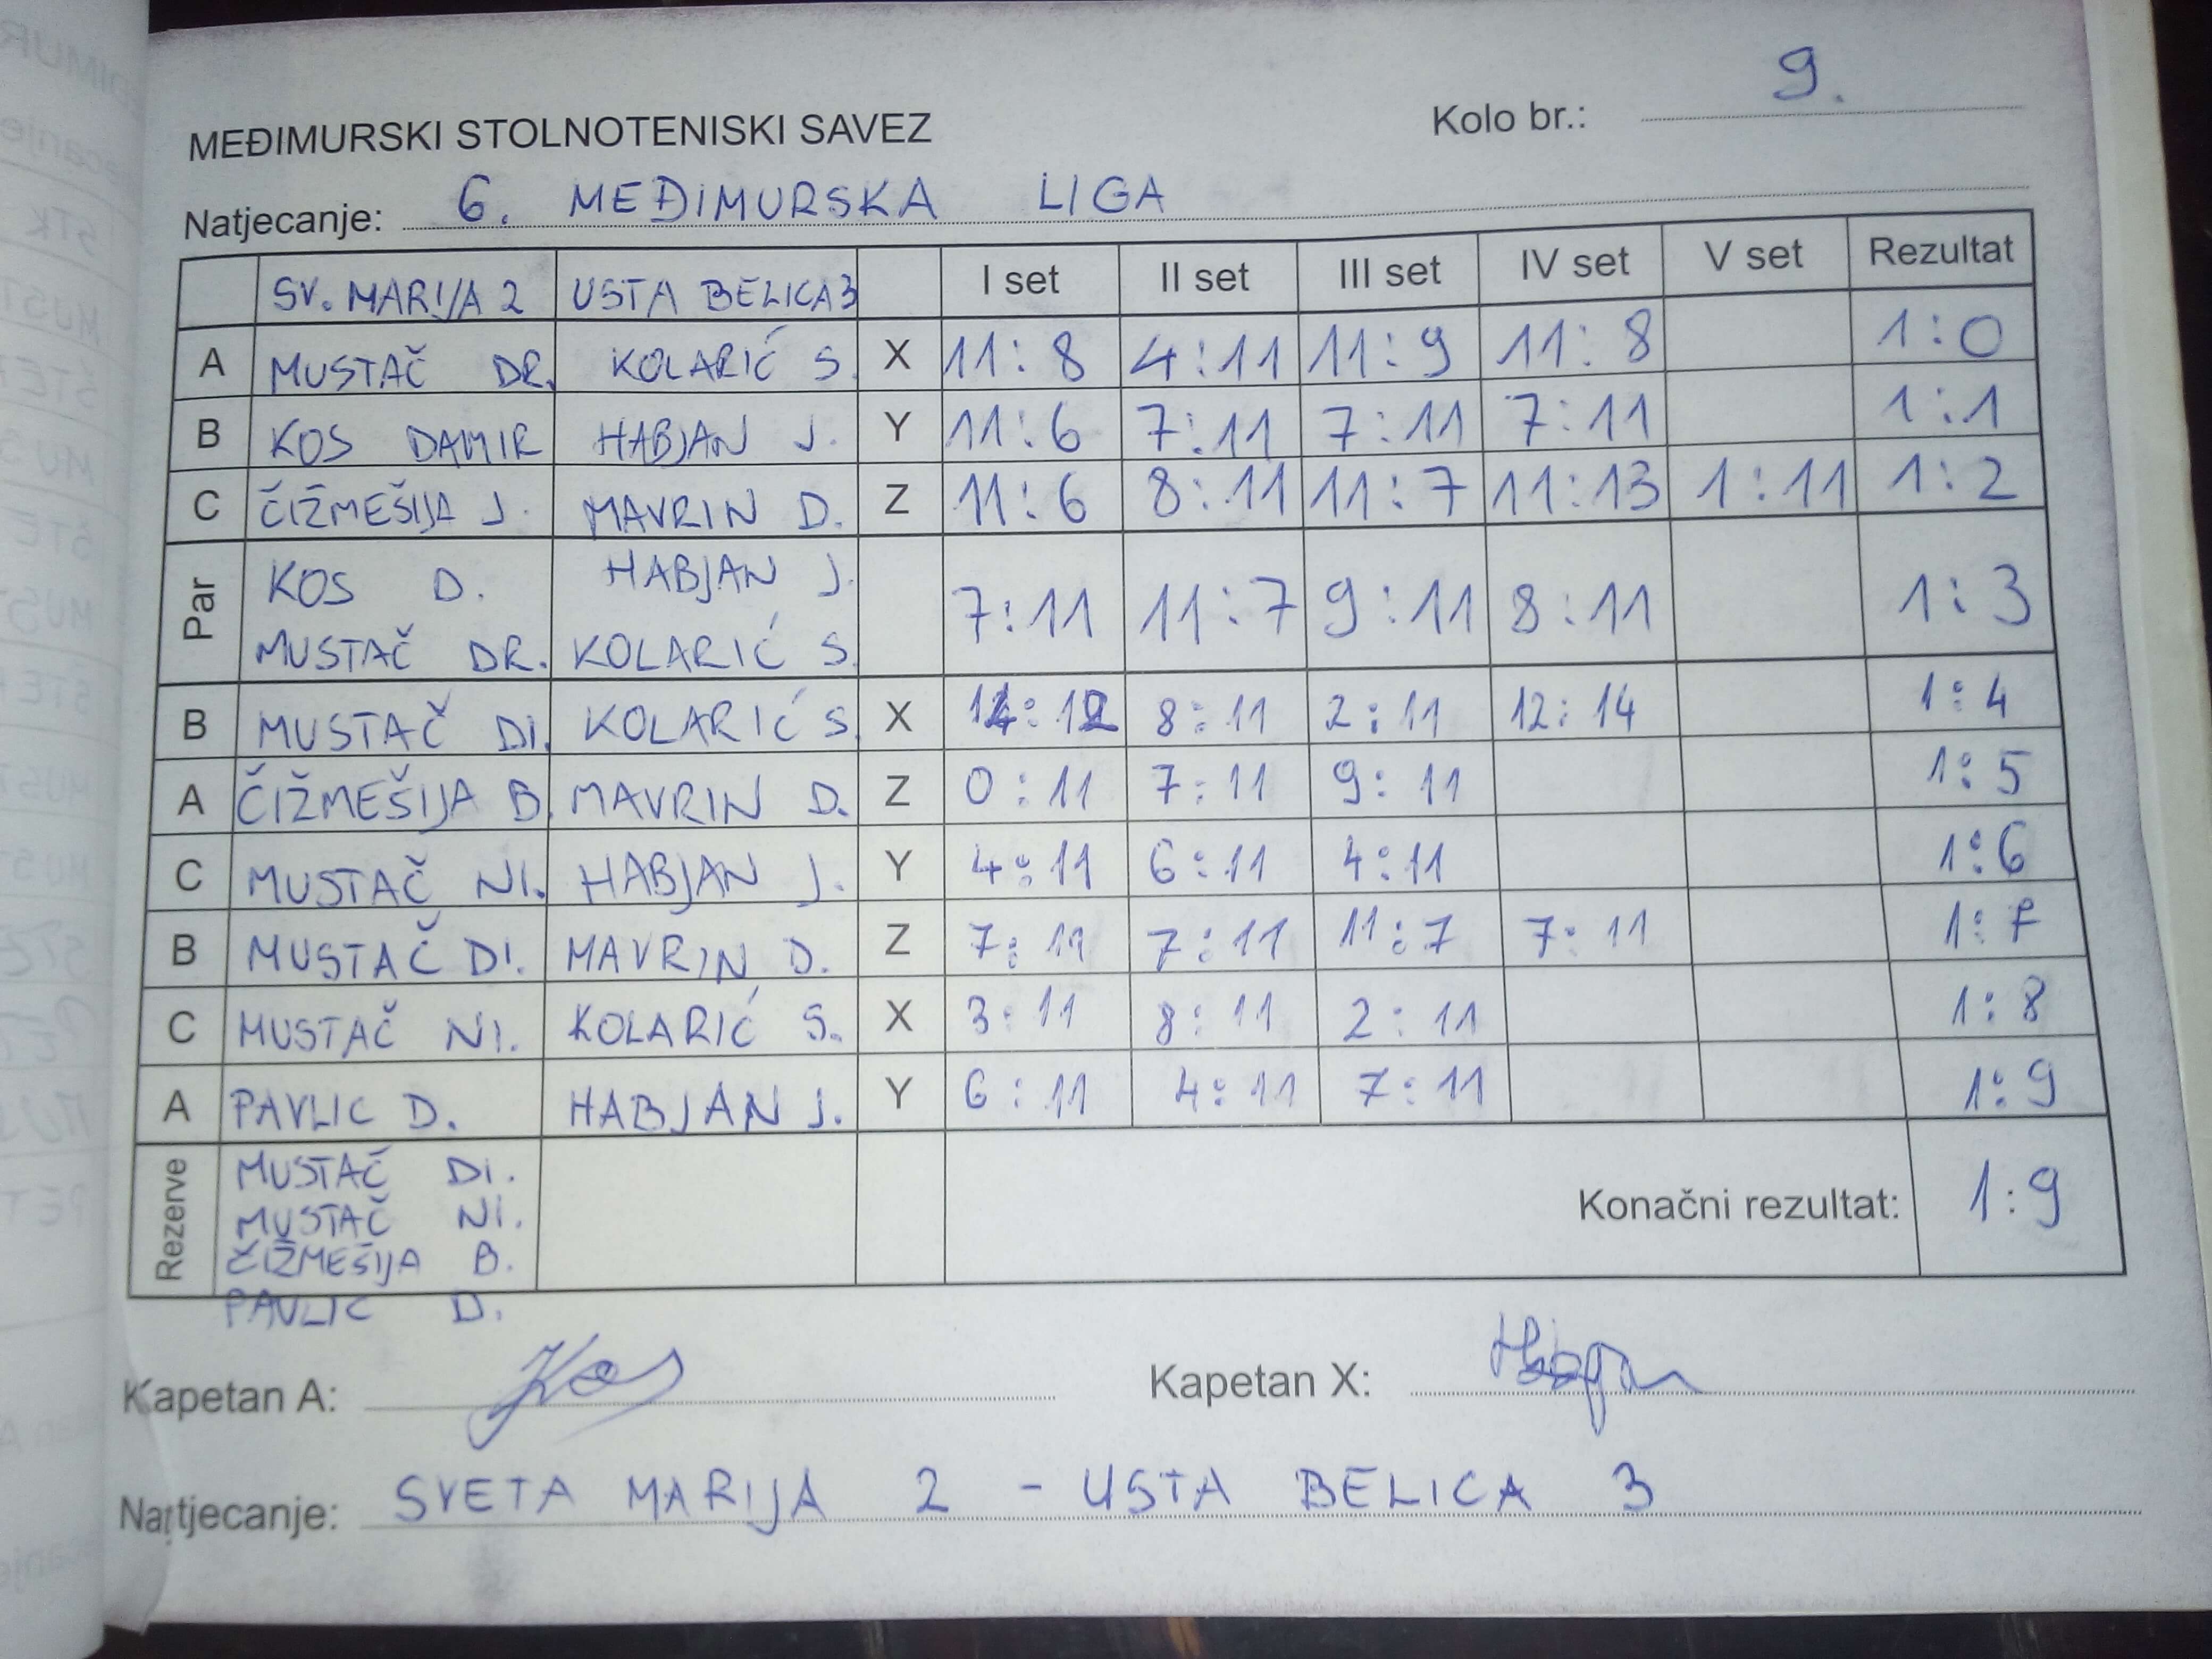 MEĐIMURSKI STOLNOTENISKI SAVEZ Kolo br.: 9.
Natjecanje: 6. MEĐIMURSKA LIGA
SV. MARIJA 2 USTA BELICA 3 I set II set III set IV set V set Rezultat
A MUSTAČ DR. KOLARIĆ S. X 11:8 4:11 11:9 11:8 1:0
B KOS DAMIR HABJAN J. Y 11:6 7:11 7:11 7:11 1:1
C ČIŽMEŠIJA J. MAVRIN D. Z 11:6 8:11 11:7 11:13 1:11 1:2
Par KOS D. HABJAN J. 7:11 11:7 9:11 8:11 1:3
MUSTAČ DR. KOLARIĆ S.
B MUSTAČ DI. KOLARIĆ S. X 14:12 8:11 2:11 12:14 1:4
A ČIŽMEŠIJA B. MAVRIN D. Z 0:11 7:11 9:11 1:5
C MUSTAČ NI. HABJAN J. Y 4:11 6:11 4:11 1:6
B MUSTAČ DI. MAVRIN D. Z 7:11 7:11 11:7 7:11 1:7
C MUSTAČ NI. KOLARIĆ S. X 3:11 8:11 2:11 1:8
A PAVLIC D. HABJAN J. Y 6:11 4:11 7:11 1:9
Rezerve MUSTAČ DI.
MUSTAČ NI. Konačni rezultat: 1:9
ČIŽMEŠIJA B.
PAVLIC D.
Kapetan A: Kos Kapetan X:
Natjecanje: SVETA MARIJA 2 - USTA BELICA 3